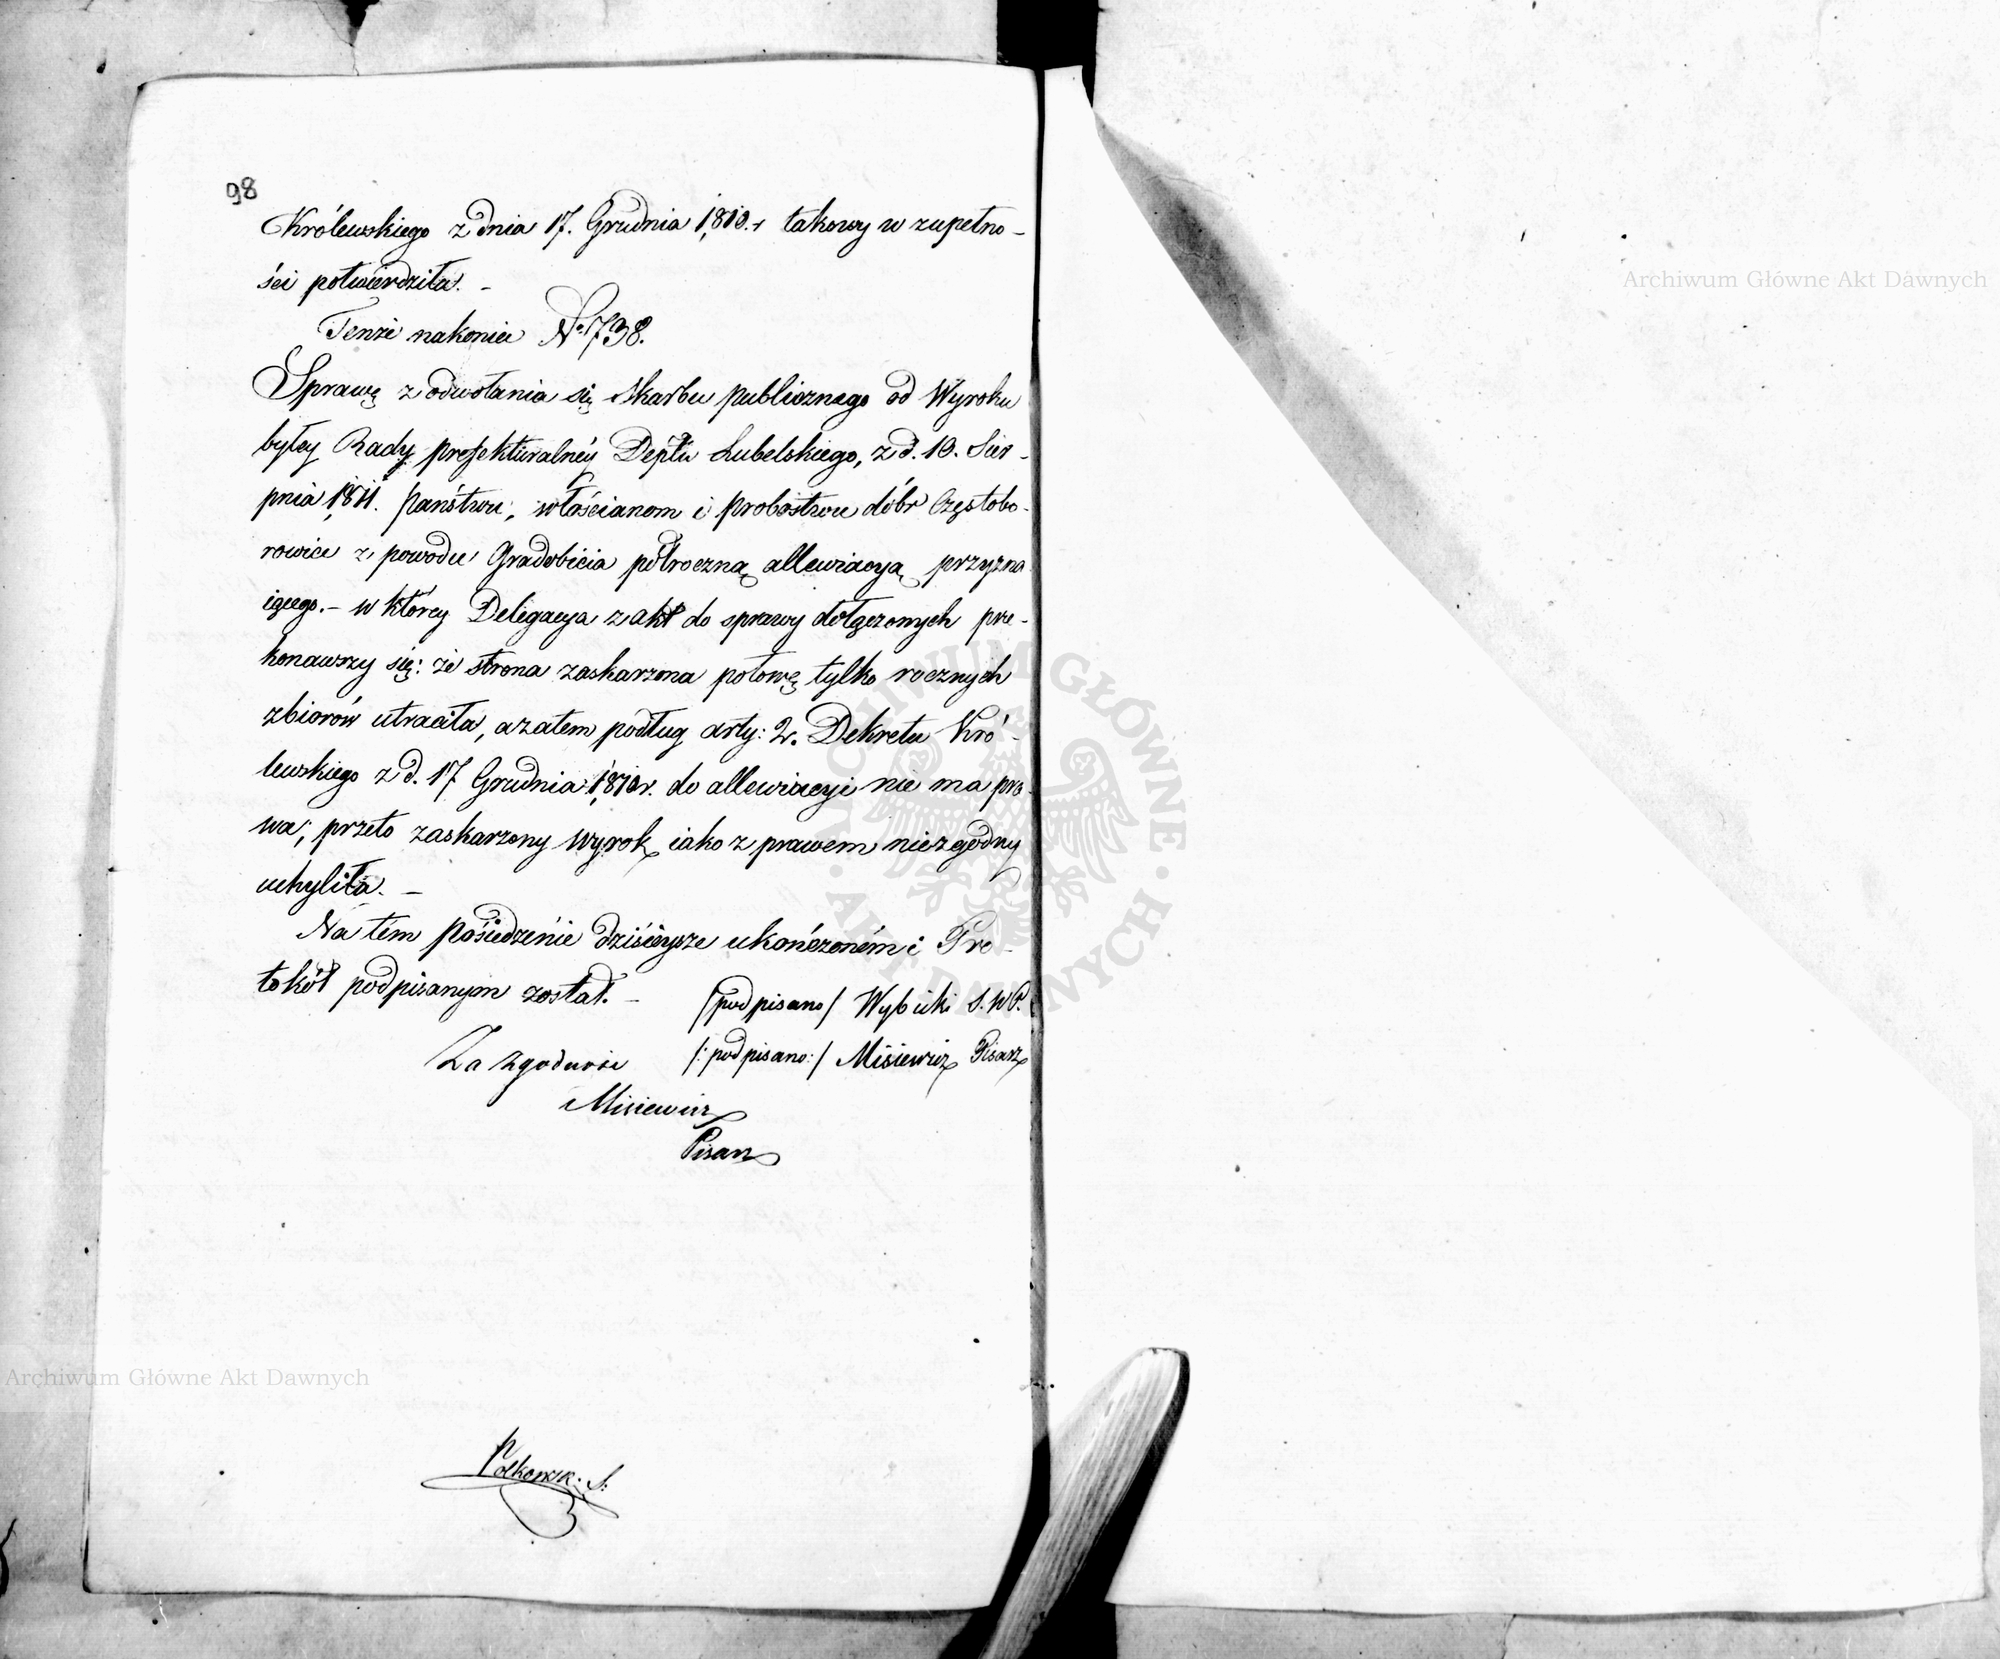 98
Królewskiego z dnia 17. Grudnia 1810. r takowy w zupełno-
ści potwierdziła. -
Tenże nakoniec No 1738.
Sprawę z odwołania się Skarbu publicznego od Wyroku
byłey Rady prefekturalnéy Deptu Lubelskiego, z d. 10. Sier-
pnia 1811. państwu, włościanom i probostwu dóbr Częstobo-
rowice z powodu Gradobicia półroczną allewiacyą przyzna
iącego. - w którey Delegacya z akt do sprawy dołączonych prze-
konawszy się: że strona zaskarżona połowę tylko rocznych
zbiorów utraciła, a zatem podług arty: 2. Dekretu Kró-
lewskiego z d. 17 Grudnia 1810 r. do allewiacyi nie ma pra-
wa; przeto zaskarżony wyrok iako z prawem niezgodny
uchyliła. -
Na tém posiedzenie dzisieysze ukończoném i Pro-
tokół podpisanym został. -
/podpisano/ Wybicki S. W P.
Za zgodność /: podpisano:/ Misiewicz Pisarz
Misiewicz
Pisarz
Archiwum Główne Akt Dawnych
Archiwum Główne Akt Dawnych
ARCHIWUM GŁÓWNE · AKT DAWNYCH ·